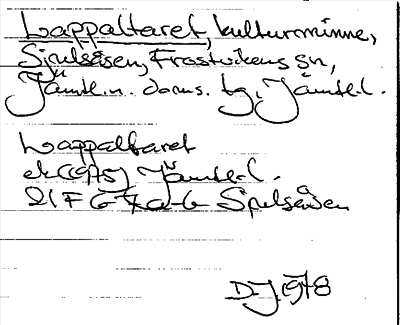 Lappaltaret, kulturminne,
Spelsåsen, Frostvikens sn,
Jämtl. n. doms. tg, Jämtl. l.
Lappaltaret
ek (1975) Jämtl. l.
21 F 6-7 a-b Spelsåsen
D.J. 1978